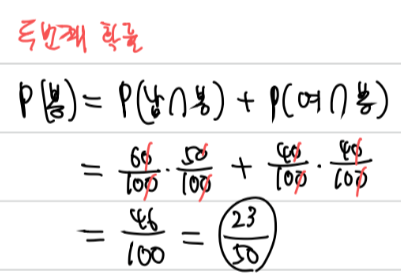 두번째 확률
P(봉) = P(남∩봉) + P(여∩봉)
= 60/100 · 50/100 + 40/100 · 40/100
= 46/100 = 23/50